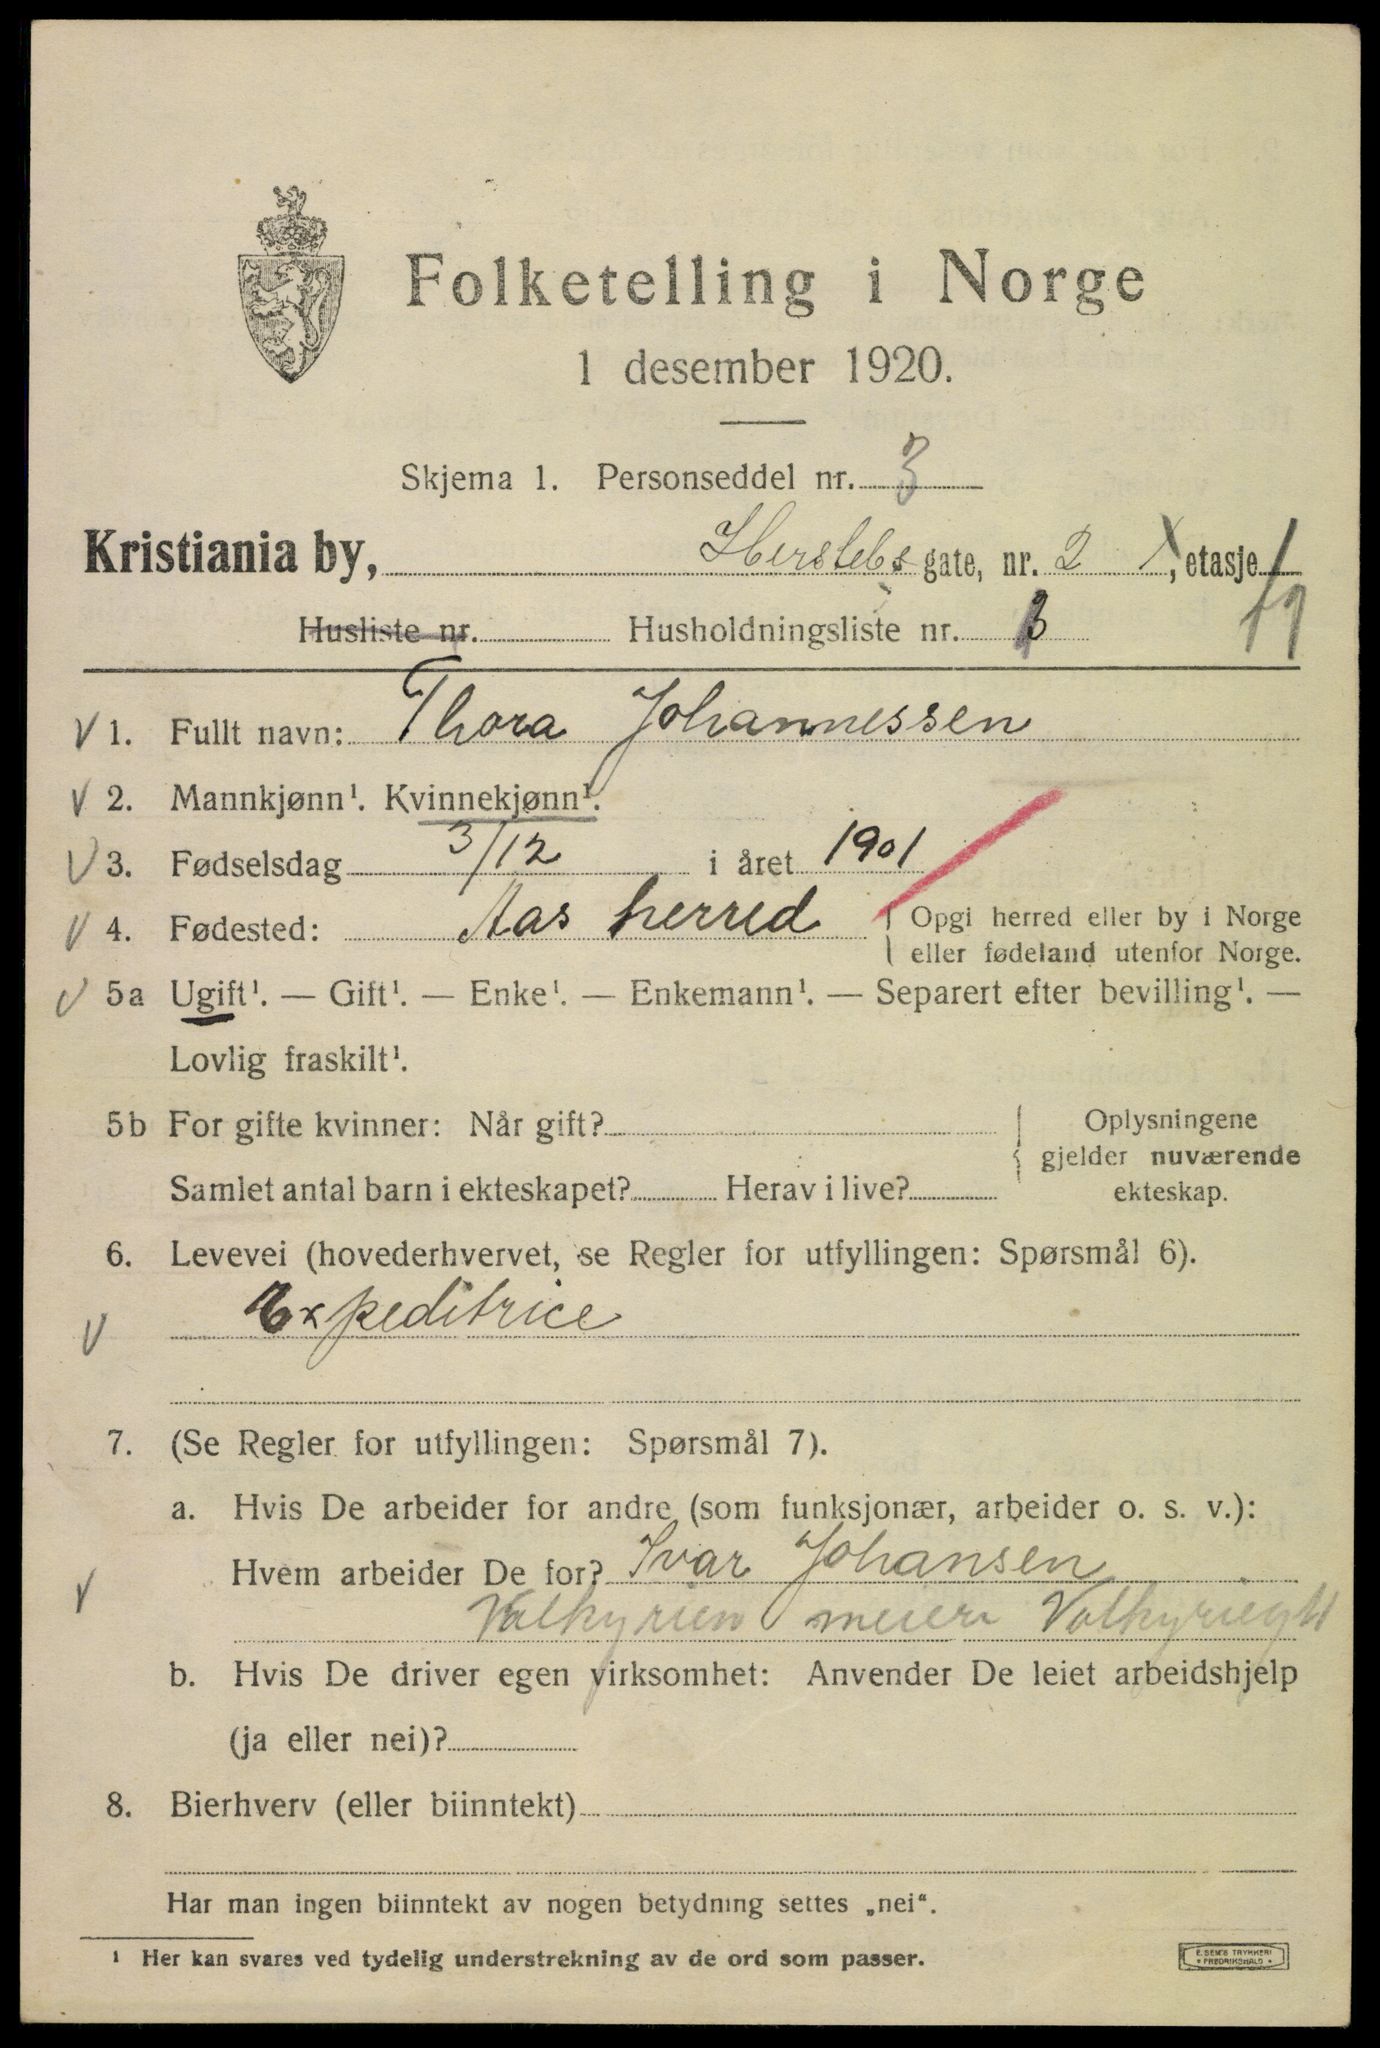 Folketelling i Norge
1 desember 1920.
Skjema 1. Personseddel nr. 3
Kristiania by, Herslebs gate, nr. 2 , etasje 1
Husliste nr. Husholdningsliste nr. 3
V 1. Fullt navn: Thora Johannessen
V 2. Mannkjønn¹. Kvinnekjønn¹.
V 3. Fødselsdag 3/12 i året 1901
V 4. Fødested: Aas herred { Opgi herred eller by i Norge
eller fødeland utenfor Norge.
V 5a Ugift¹. — Gift¹. — Enke¹. — Enkemann¹. — Separert efter bevilling¹. —
Lovlig fraskilt¹.
5b For gifte kvinner: Når gift? { Oplysningene
gjelder nuværende
Samlet antal barn i ekteskapet? Herav i live? ekteskap.
6. Levevei (hovederhvervet, se Regler for utfyllingen: Spørsmål 6).
V Expeditrice
7. (Se Regler for utfyllingen: Spørsmål 7).
a. Hvis De arbeider for andre (som funksjonær, arbeider o. s. v.):
V Hvem arbeider De for? Ivar Johansen
Valkyrien meieri
b. Hvis De driver egen virksomhet: Anvender De leiet arbeidshjelp
(ja eller nei)?
8. Bierhverv (eller biinntekt)
Har man ingen biinntekt av nogen betydning settes „nei“.
¹ Her kan svares ved tydelig understrekning av de ord som passer.
E. SEM'S TRYKKERI
* FREDRIKSHALD *